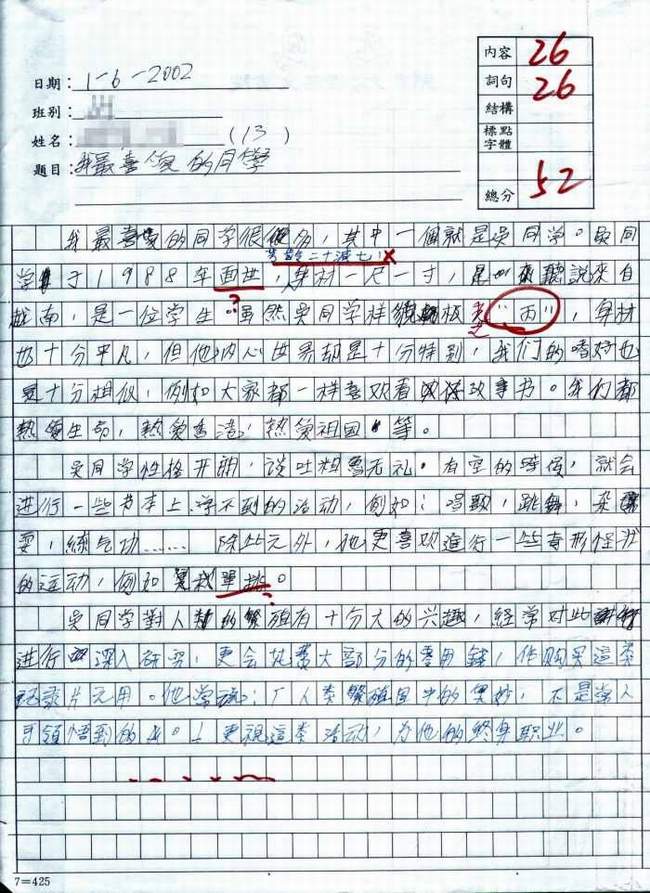 日期：1-6-2002
班別：
姓名：(13)
題目：我最喜愛的同學
內容 26
詞句 26
結構
標點字體
總分 52
我最喜愛的同学很多，其中一個就是吳同学。吳同
芳齡二十減七
学于1988年面世，身材一尺一寸，是 聽說來自
越南，是一位学生。雖然吳同学样 板 "丙"，身材
也十分平凡，但他内心世界却是十分特别，我们的嗜好也
是十分相似，例如大家都一样喜欢看 故事书。我们都
热爱生命，熱爱香港，热爱祖国等。
吳同学性格开朗，谈吐粗魯无礼。有空的時候，就会
进行一些书本上学不到的活动，例如：唱歌，跳舞，杂
耍，練气功…… 除此之外，他更喜欢進行一些奇形怪状
的运动，例如 單挑。
吳同学對人類的繁殖有十分大的兴趣，经常对此
进行深入研究，更会花费大部分的零用錢，作购买這类
纪录片之用。他常说：「人类繁殖里中的奥妙，不是常人
可領悟到的。」更視這类活动，为他的終身职业。
7=425